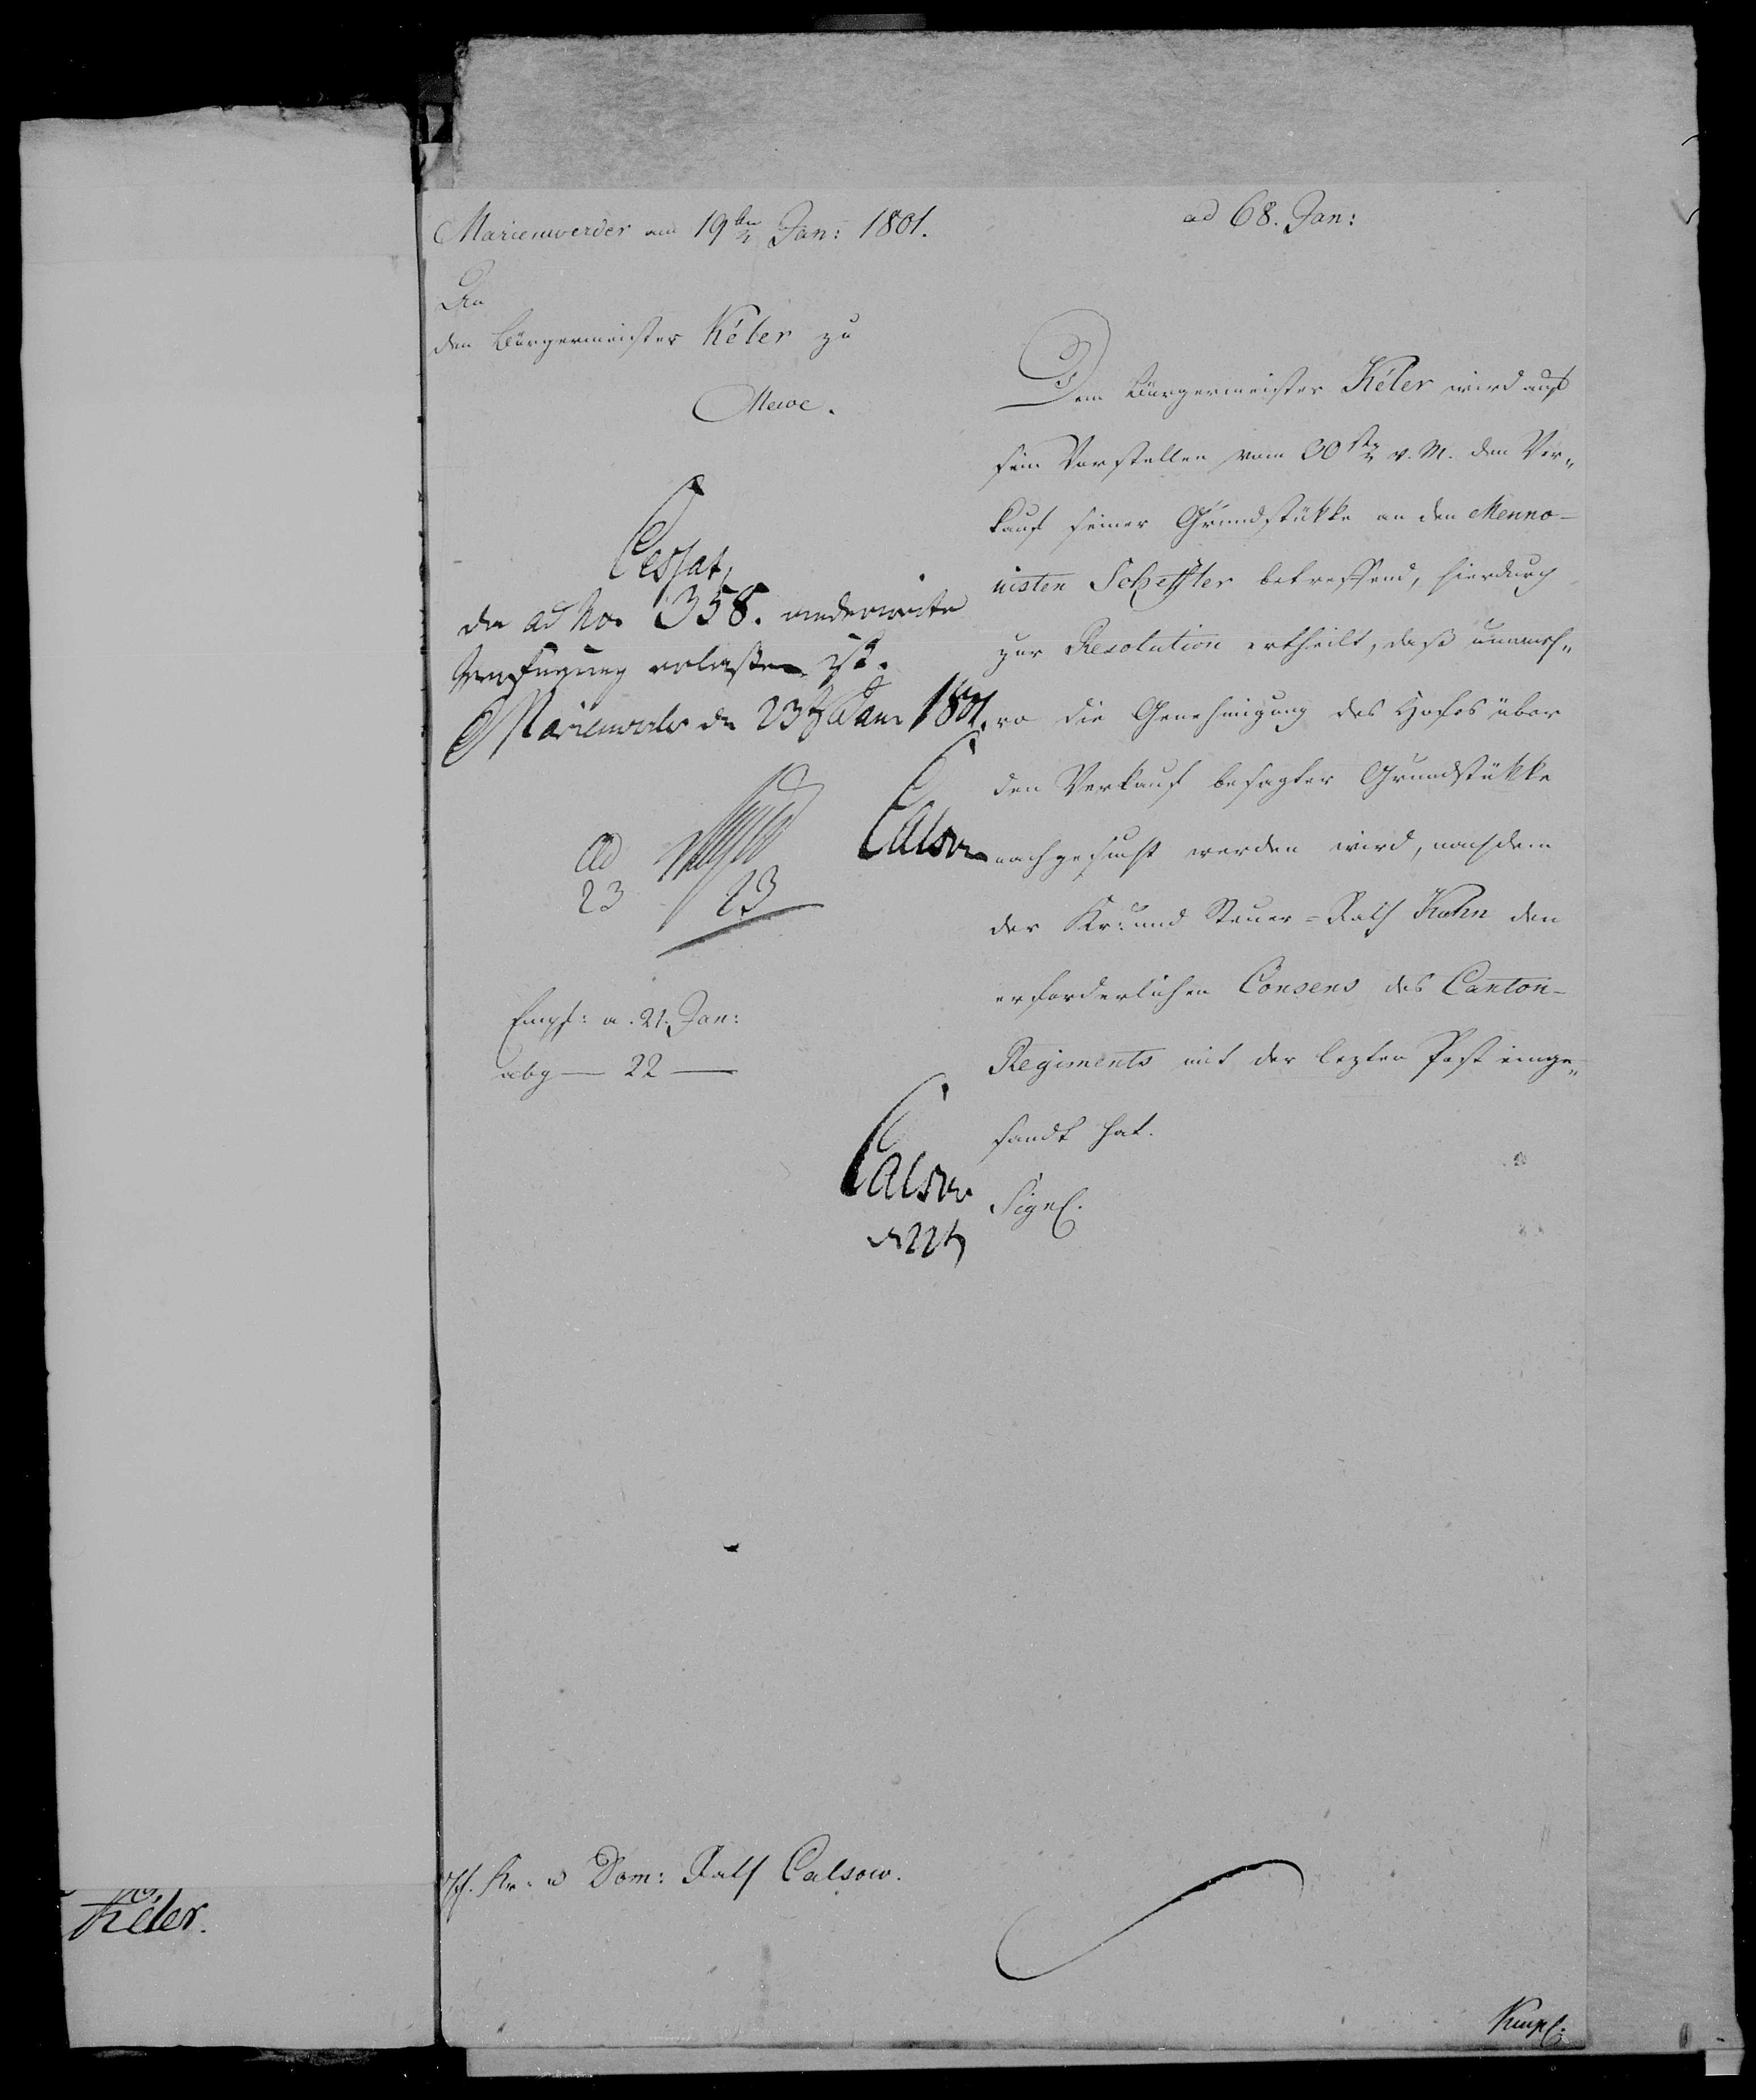 Marienwerder am 19ten Jan: 1801.
ad 68. Jan:
An
den Bürgermeister Kéler zu
Mewe.
Cessat,
da ad No. 358. anderweite
Verfügung erlassen ist.
Marienwerder den 23t Jan 1801.
Calsow
ad
23 23
Empf: a. 21. Jan:
abg — 22 —
Calsow
d 22t
Dem Bürgermeister Kéler wird auf
sein Vorstellen vom 30sten v. M. den Ver„
kauf seiner Grundstükke an den Menno-
nisten Scheffler betreffend, hierdurch
zur Resolution ertheilt, daß nunmeh„
ro die Genehmigung des Hofes über
den Verkauf besagter Grundstükke
nachgesucht werden wird, nachdem
der Kr: und Steuer-Rath Kohn den
erforderlichen Consens des Canton-
Regiments mit der lezten Post einge„
sandt hat.
Sign.
H. Kr. u Dom: Rath Calsow.
Kéler.